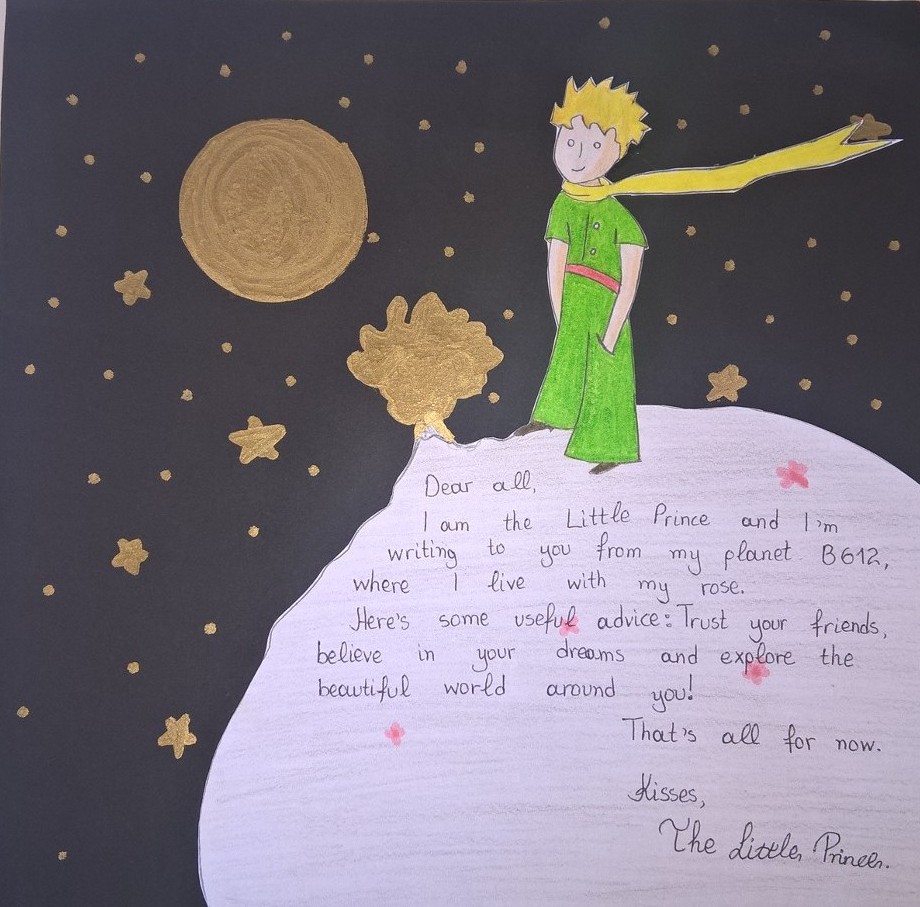 Dear all,
I am the Little Prince and I'm
writing to you from my planet B612,
where I live with my rose.
Here's some useful advice: Trust your friends,
believe in your dreams and explore the
beautiful world around you!
That's all for now.
Kisses,
The Little Prince.